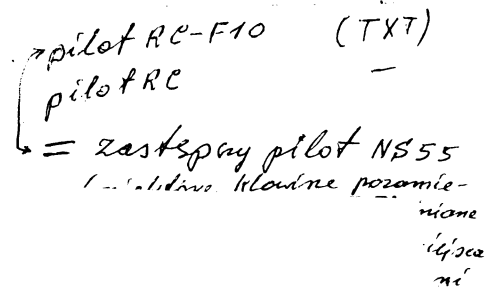 pilot RC-F10 (TXT)
pilot RC
= zastępczy pilot NS55
klawisze pozamie-
niane
ni